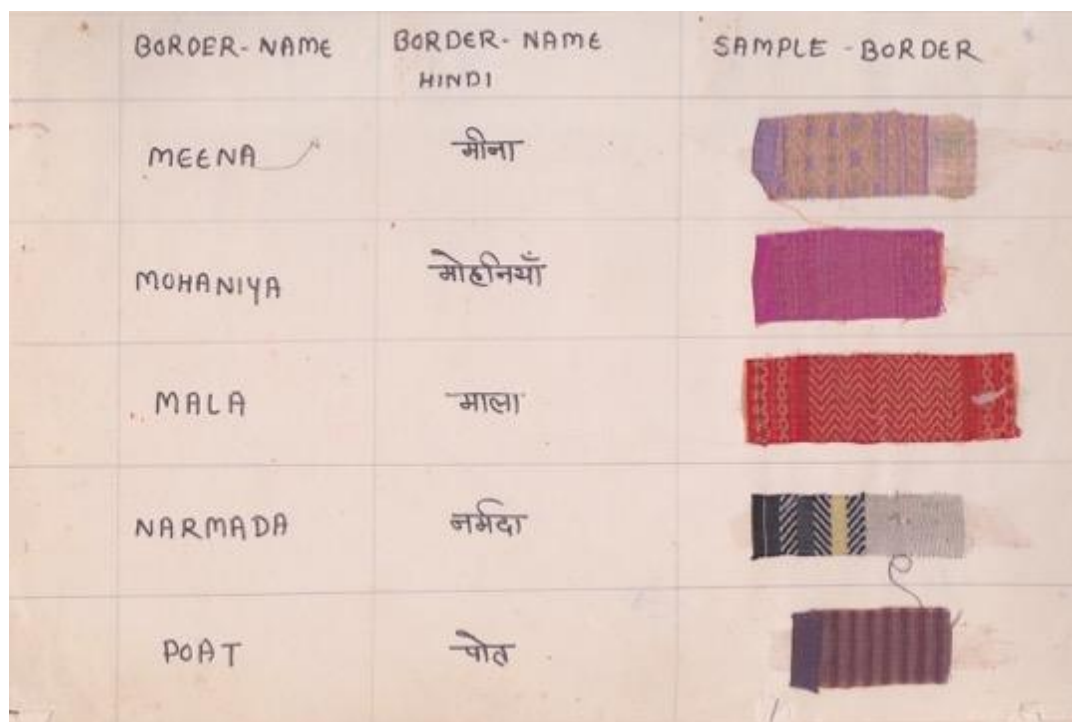 BORDER-NAME BORDER-NAME HINDI SAMPLE-BORDER
MEENA मीना
MOHANIYA मोहनियाँ
MALA माला
NARMADA नर्मदा
POAT पोत